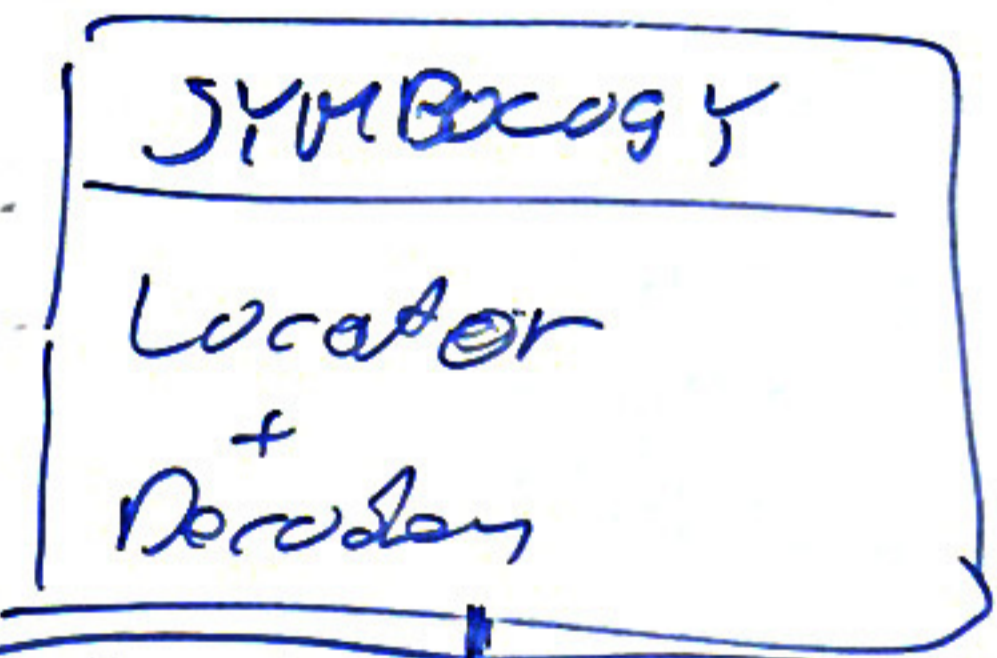 SYMBOLOGY
Locator
+
Decoder